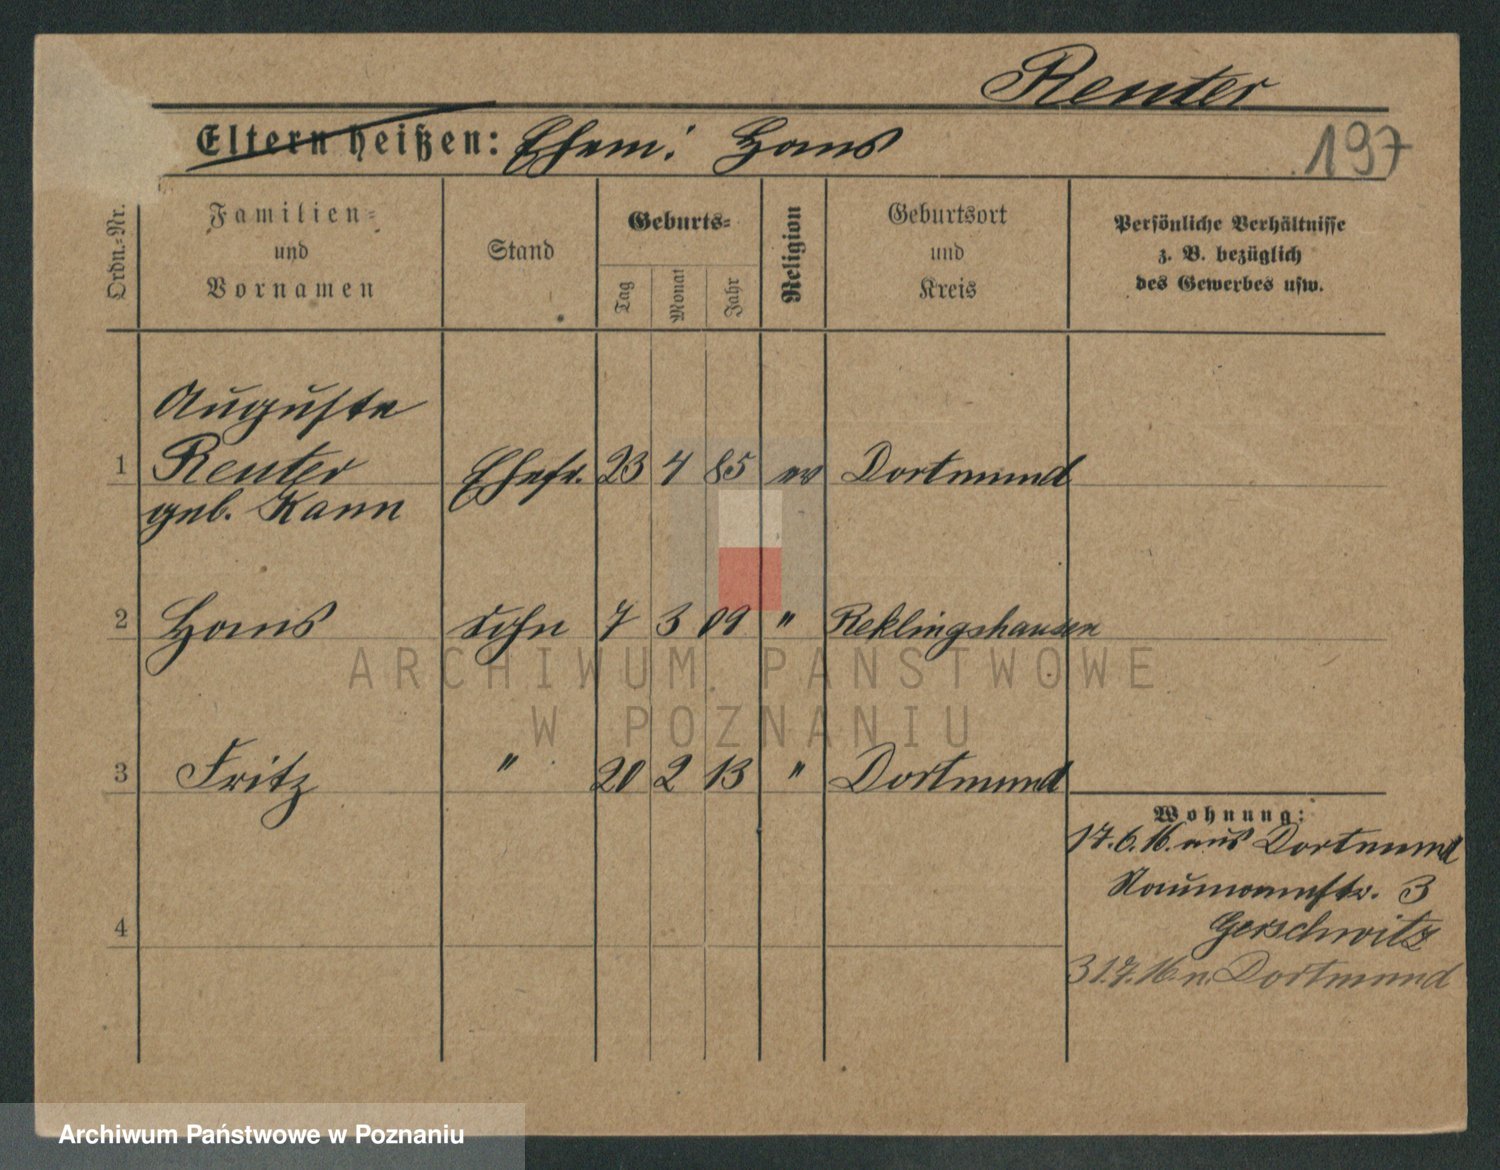 Renter
Eltern heißen: Ehem: Hans
197
Ordn.=Nr.
Familien=
und
Vornamen
Stand
Geburts=
Tag
Monat
Jahr
Religion
Geburtsort
und
Kreis
Persönliche Verhältnisse
z. B. bezüglich
des Gewerbes usw.
Auguste
1 Renter Ehefr. 23 4 85 ev Dortmund
geb. Kann
2 Hans Sohn 7 3 09 " Reklingshausen
ARCHIWUM PAŃSTWOWE
W POZNANIU
3 Fritz " 20 2 13 " Dortmund
Wohnung:
17.6.16. aus Dortmund
Naumannstr. 3
4
Gerschwitz
31.7.16 n. Dortmund
Archiwum Państwowe w Poznaniu